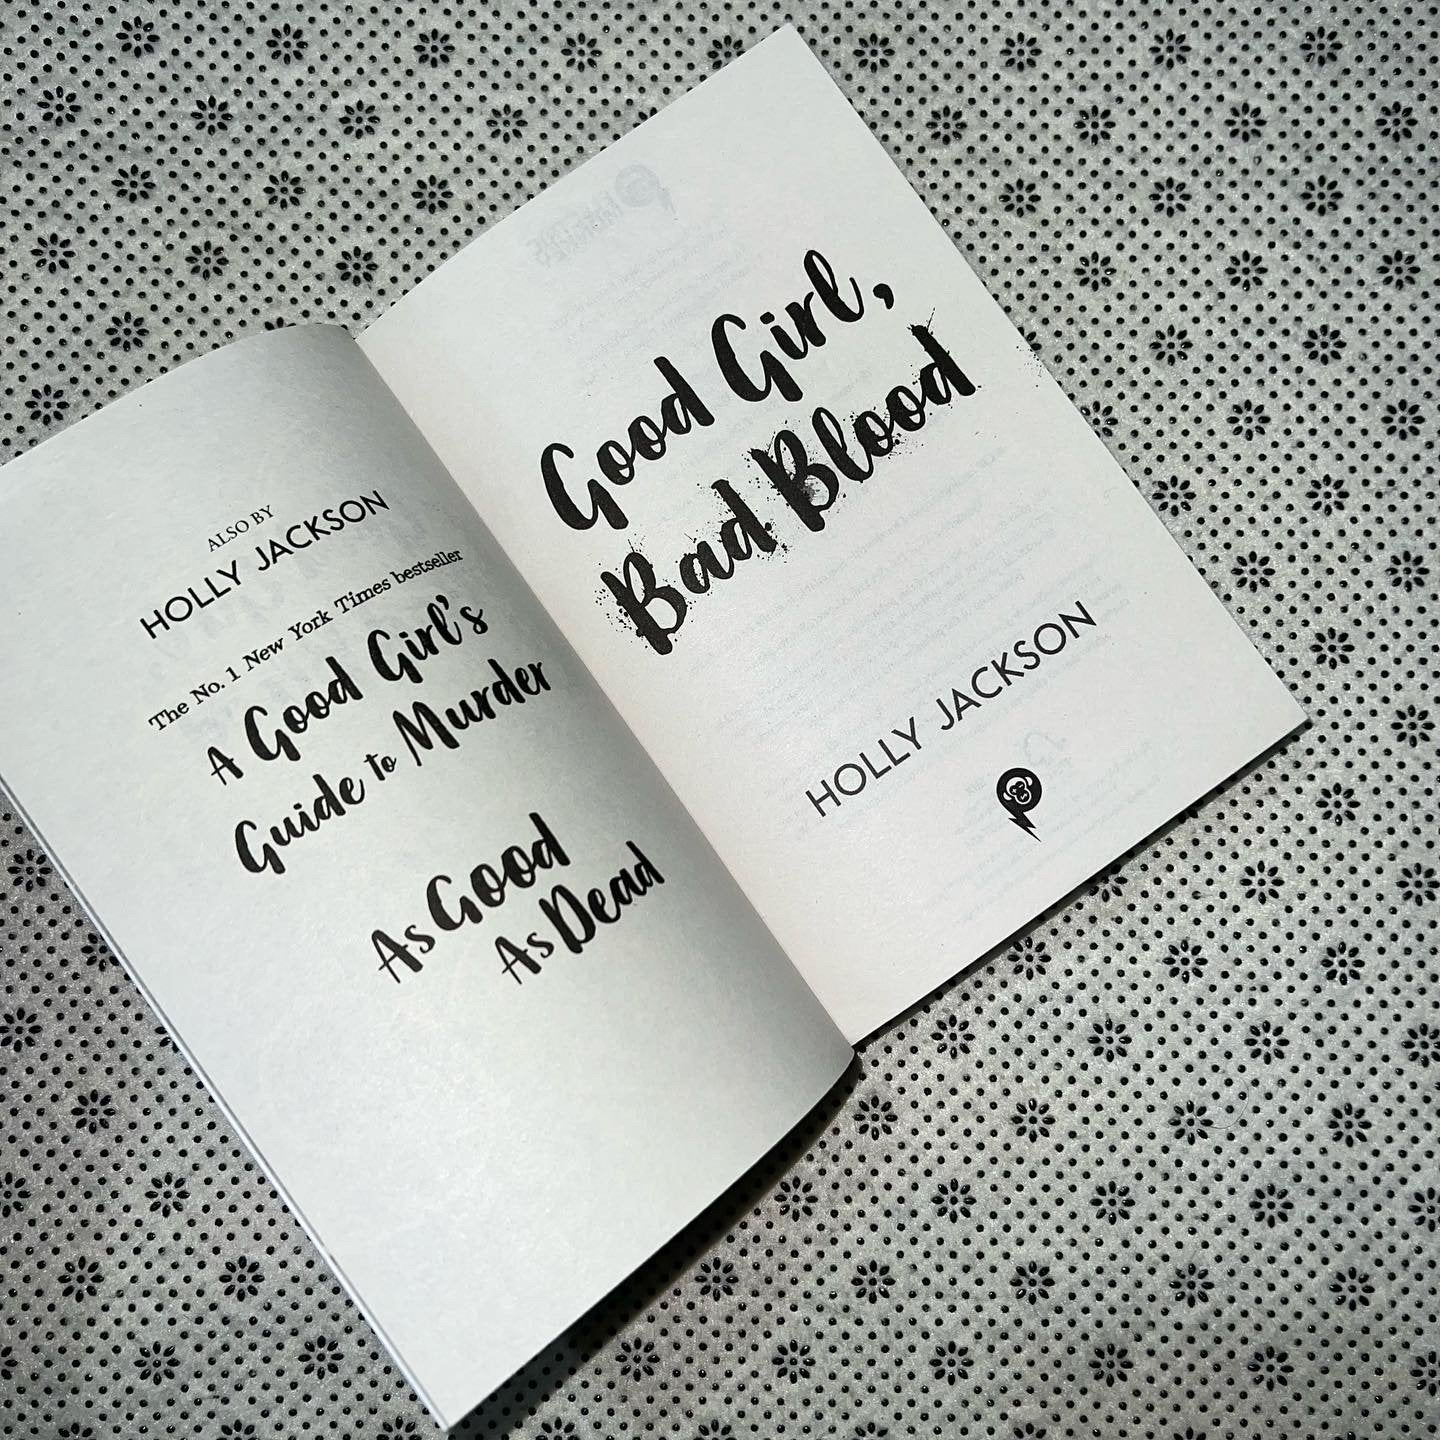 ALSO BY
HOLLY JACKSON
The No. 1 New York Times bestseller
A Good Girl's
Guide to Murder
As Good
As Dead
Good Girl,
Bad Blood
HOLLY JACKSON